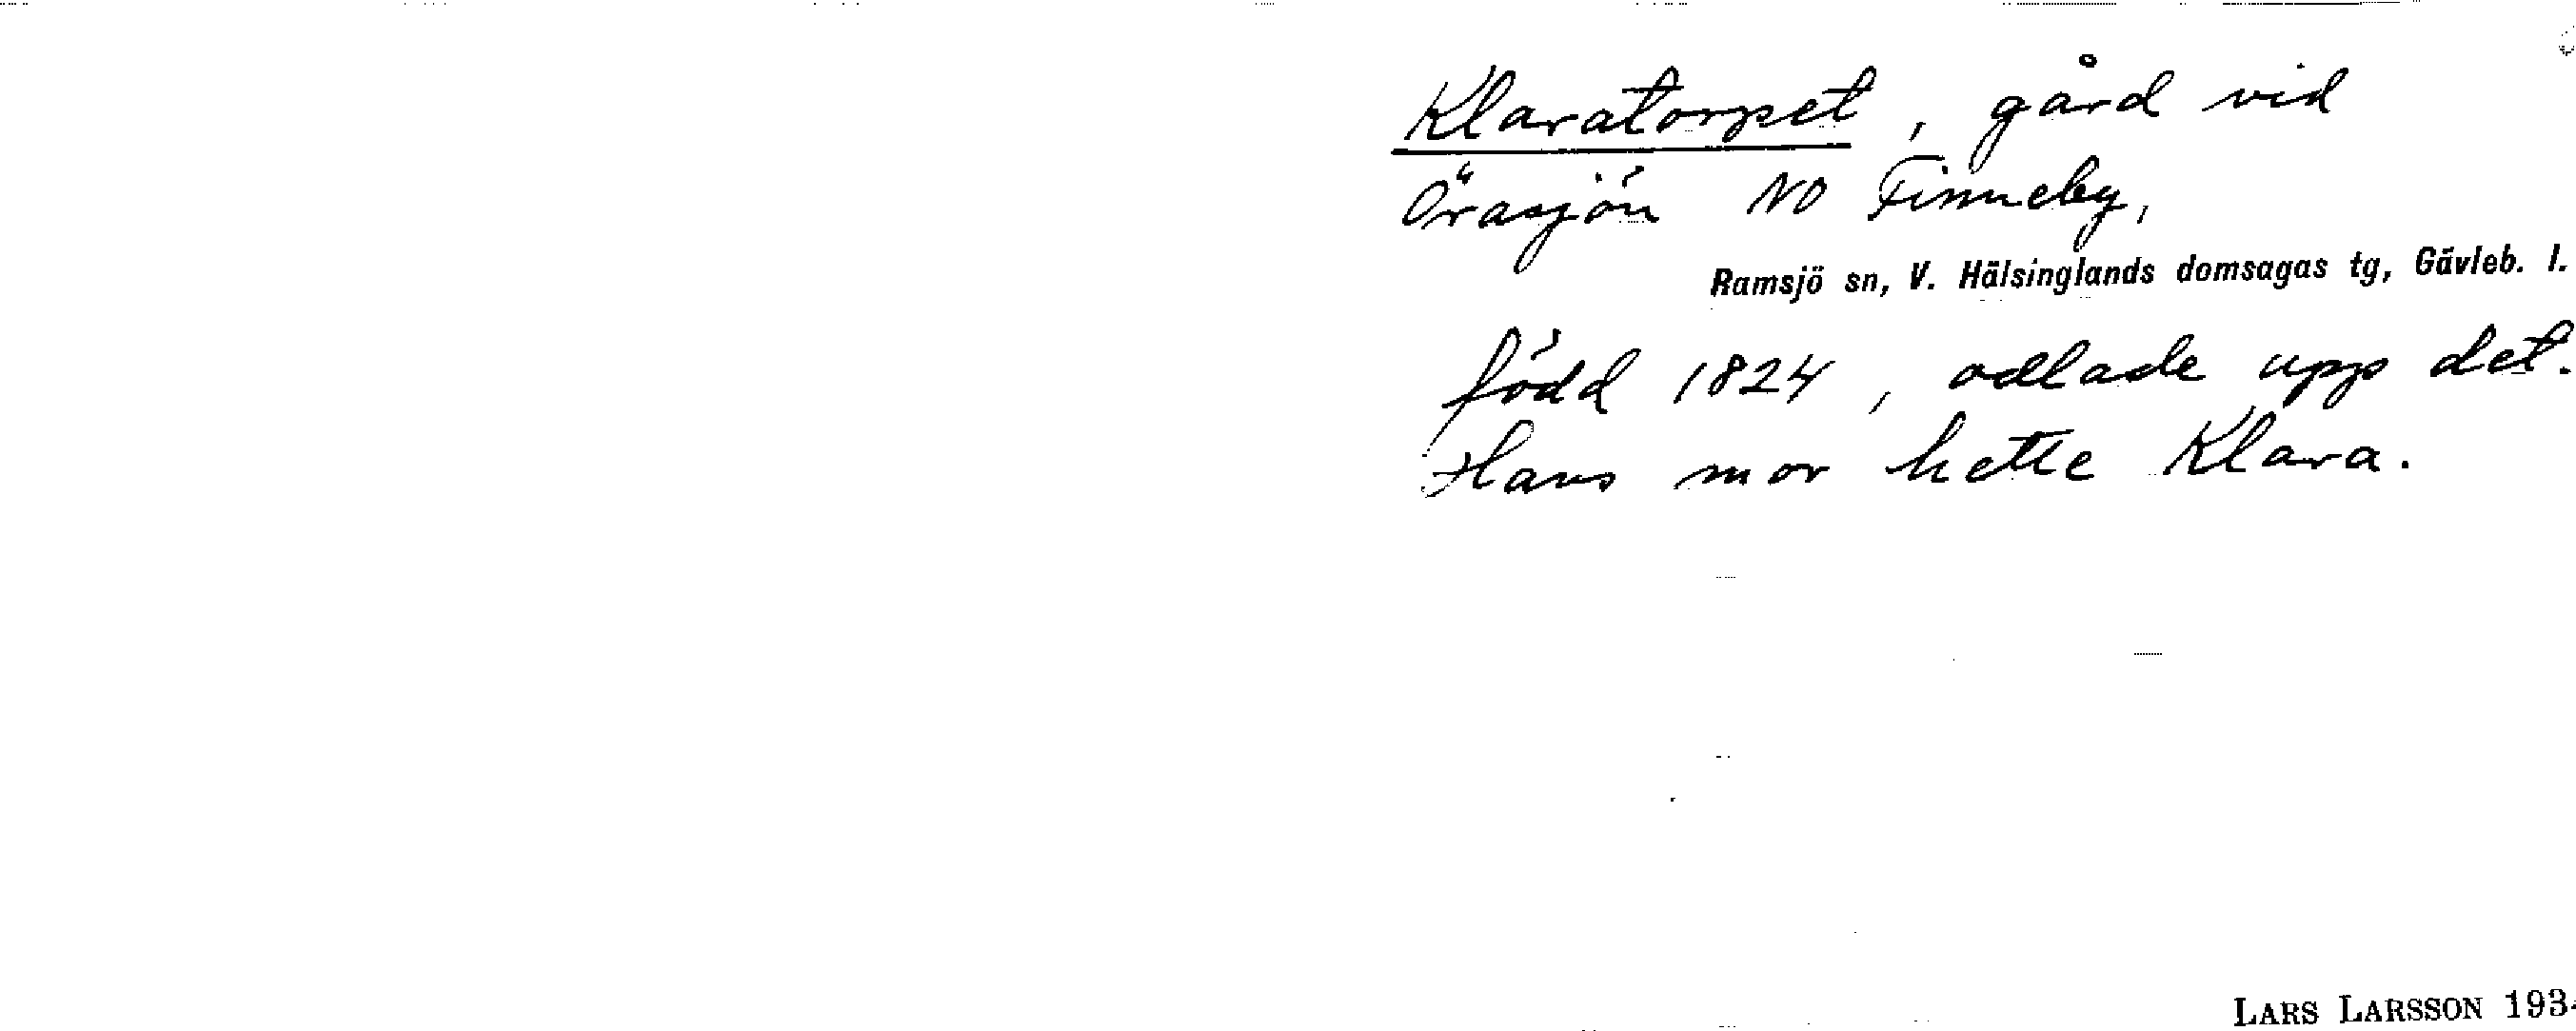 Klaratorpet, gård vid
Örasjön NO Finneby,
Ramsjö sn, V. Hälsinglands domsagas tg, Gävleb. l.
född 1824, odlade upp det.
Hans mor hette Klara.
LARS LARSSON 193